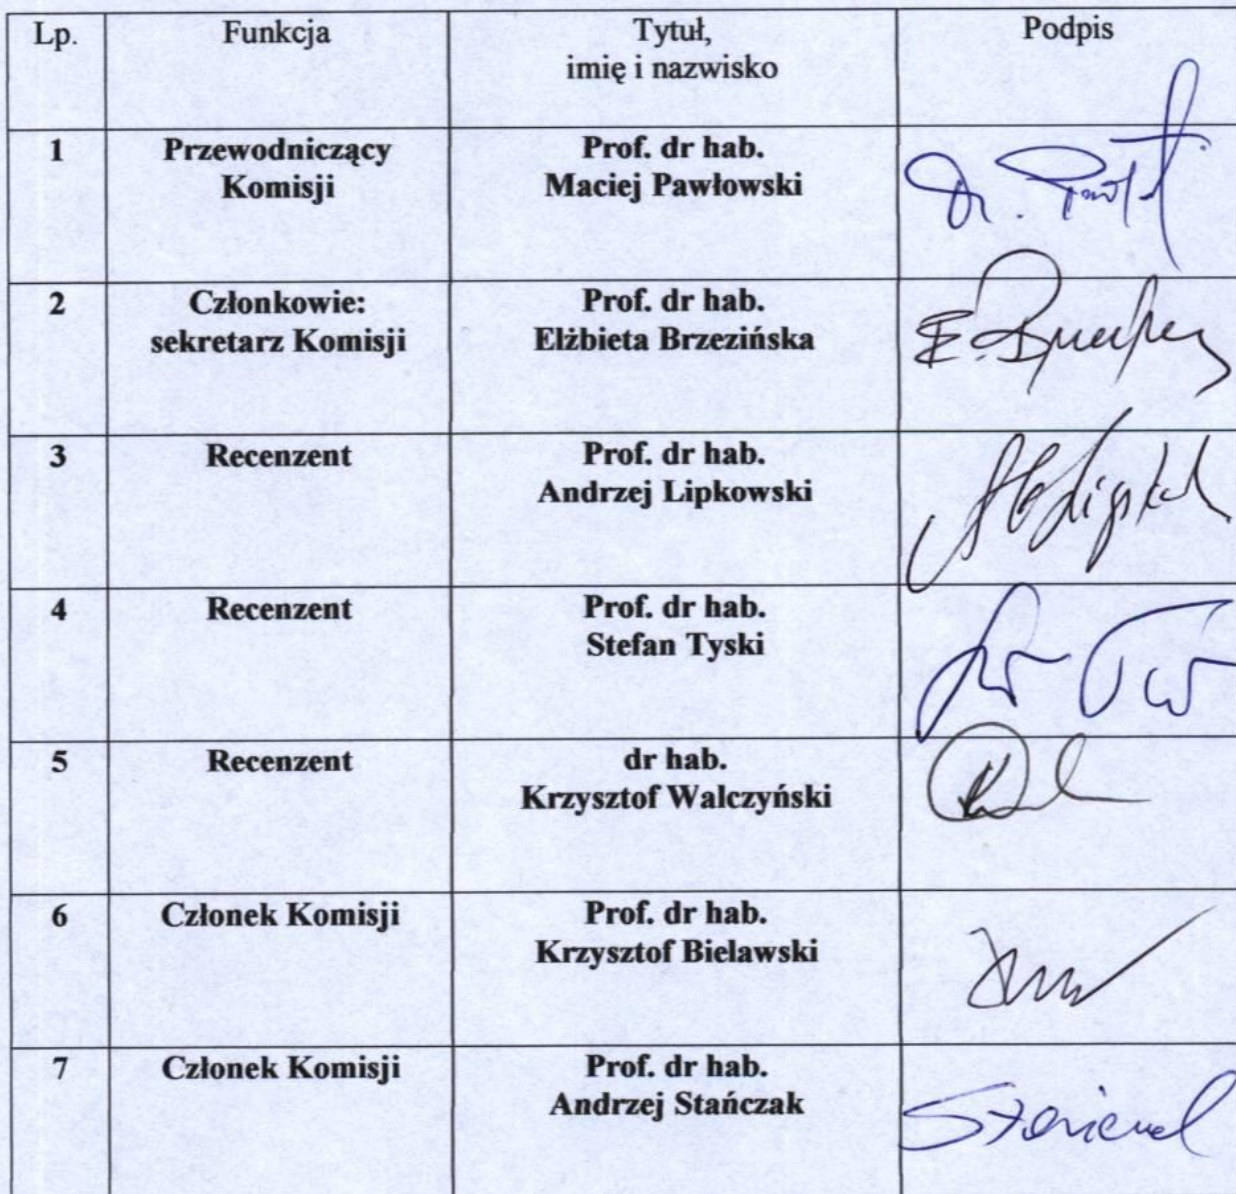 Lp.
Funkcja
Tytuł,
imię i nazwisko
Podpis
1
Przewodniczący
Komisji
Prof. dr hab.
Maciej Pawłowski
2
Członkowie:
sekretarz Komisji
Prof. dr hab.
Elżbieta Brzezińska
3
Recenzent
Prof. dr hab.
Andrzej Lipkowski
4
Recenzent
Prof. dr hab.
Stefan Tyski
5
Recenzent
dr hab.
Krzysztof Walczyński
6
Członek Komisji
Prof. dr hab.
Krzysztof Bielawski
7
Członek Komisji
Prof. dr hab.
Andrzej Stańczak